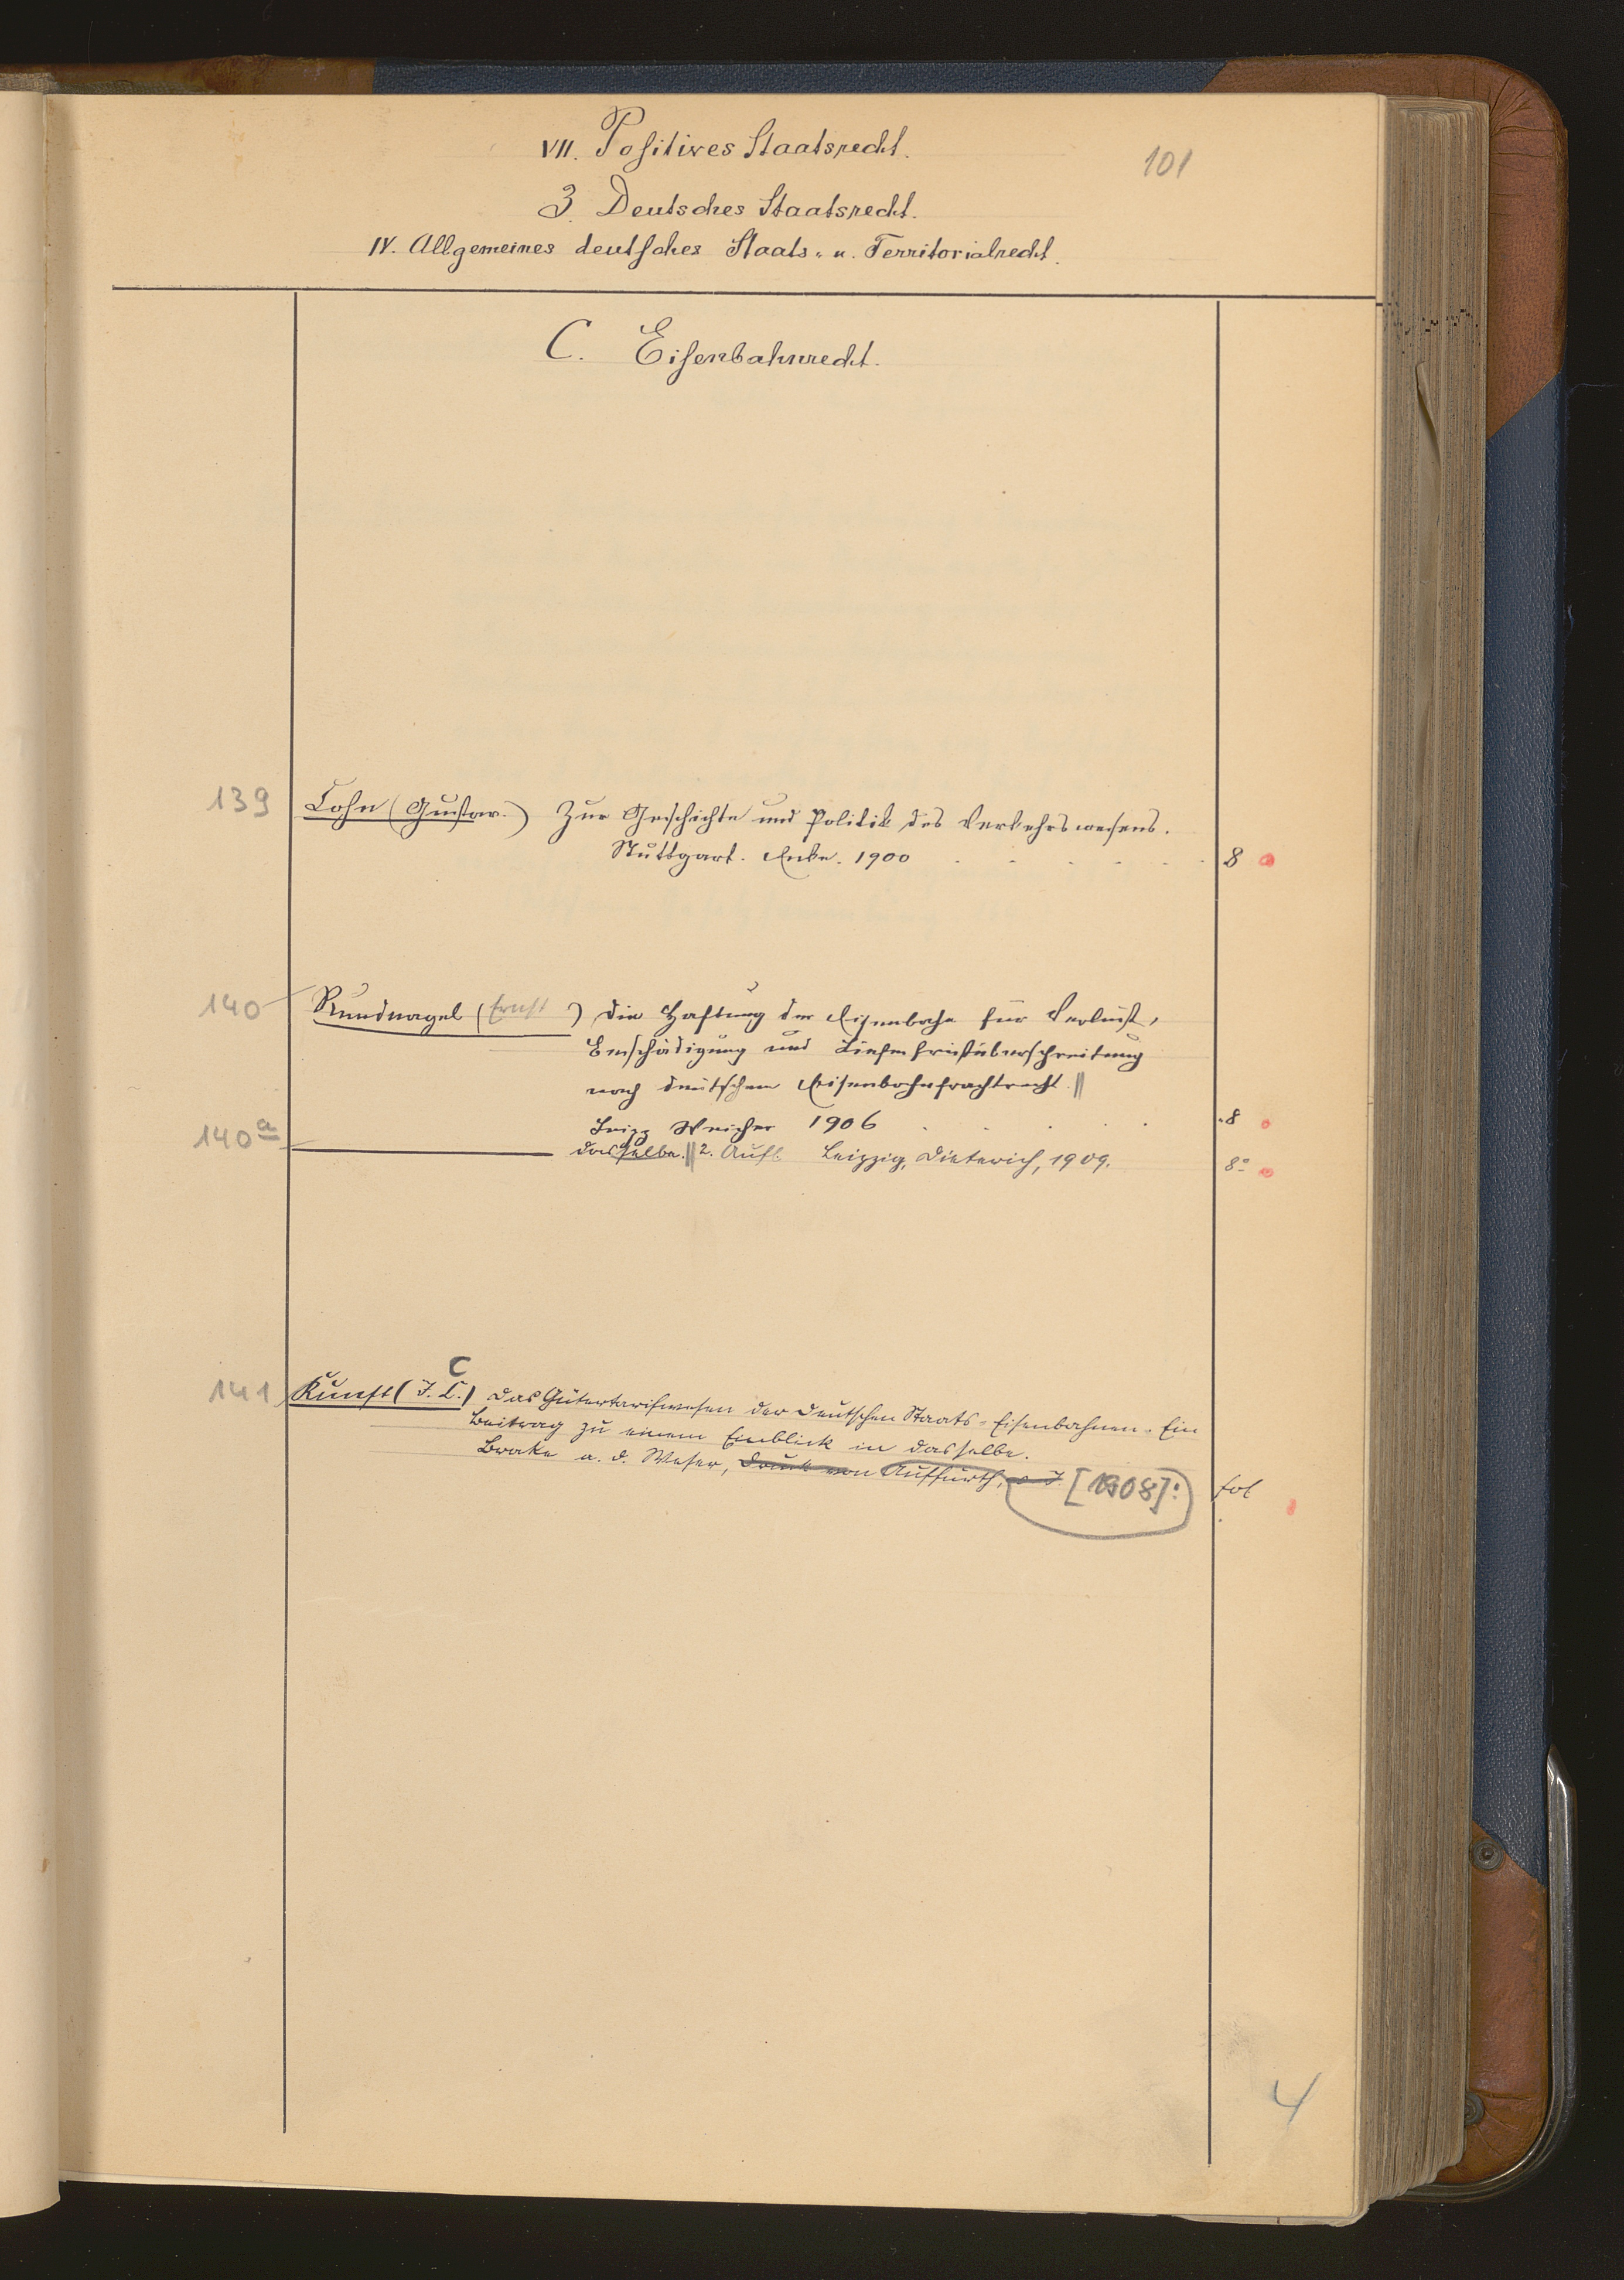 VII. Positives Staatsrecht.
101
3. Deutsches Staatsrecht.
IV. Allgemeines deutsches Staats- u. Territorialrecht.
C. Eisenbahnrecht.
139 Cohn (Gustav.) Zur Geschichte und Politik des Verkehrswesens.
Stuttgart. Enke. 1900 . . . . . 8
140 Rundnagel (Ernst) Die Haftung der Eisenbahn für Verlust,
Beschädigung und Lieferfristüberschreitung
nach deutschem Eisenbahnfrachtrecht. ||
Leipz Weicher 1906 . . . . . 8
140a ——— dasselbe. || 2. Aufl. Leipzig, Dieterich, 1909. 8°
C
141 Kunst (J. C.) Das Gütertarifwesen der Deutschen Staats-Eisenbahnen. Ein
Beitrag zu einem Einblick in dasselbe.
Brake a. d. Weser, Druck von Auffurth, o. J. [1908]: fol
4